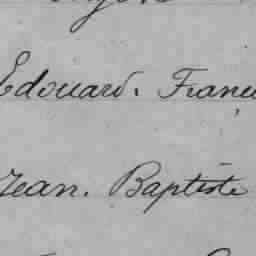 Edouard. Franc
Jean. Baptiste